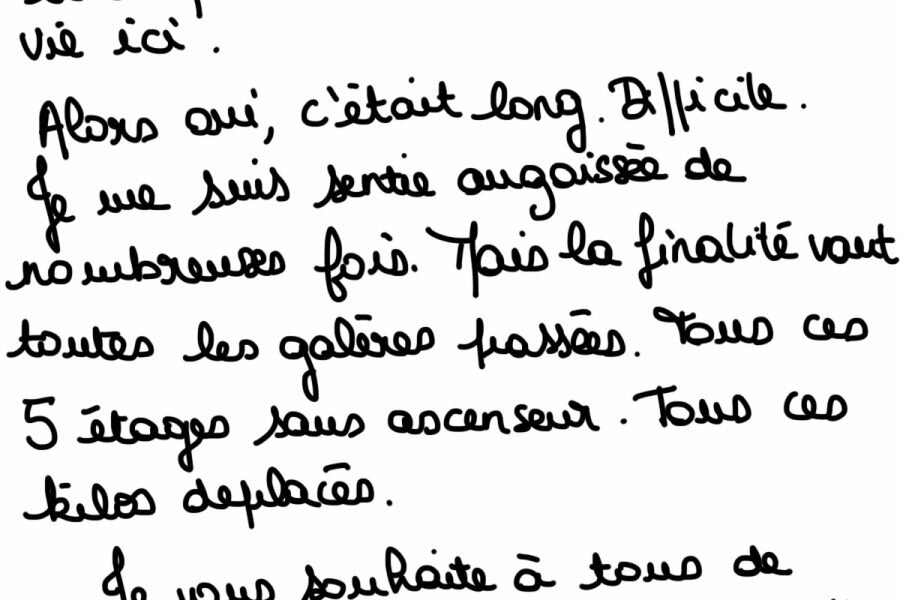 vie ici.
Alors oui, c'était long. Difficile.
Je me suis sentie angoissée de
nombreuses fois. Mais la finalité vaut
toutes les galères passées. Tous ces
5 étages sans ascenseur. Tous ces
kilos déplacés.
Je vous souhaite à tous de